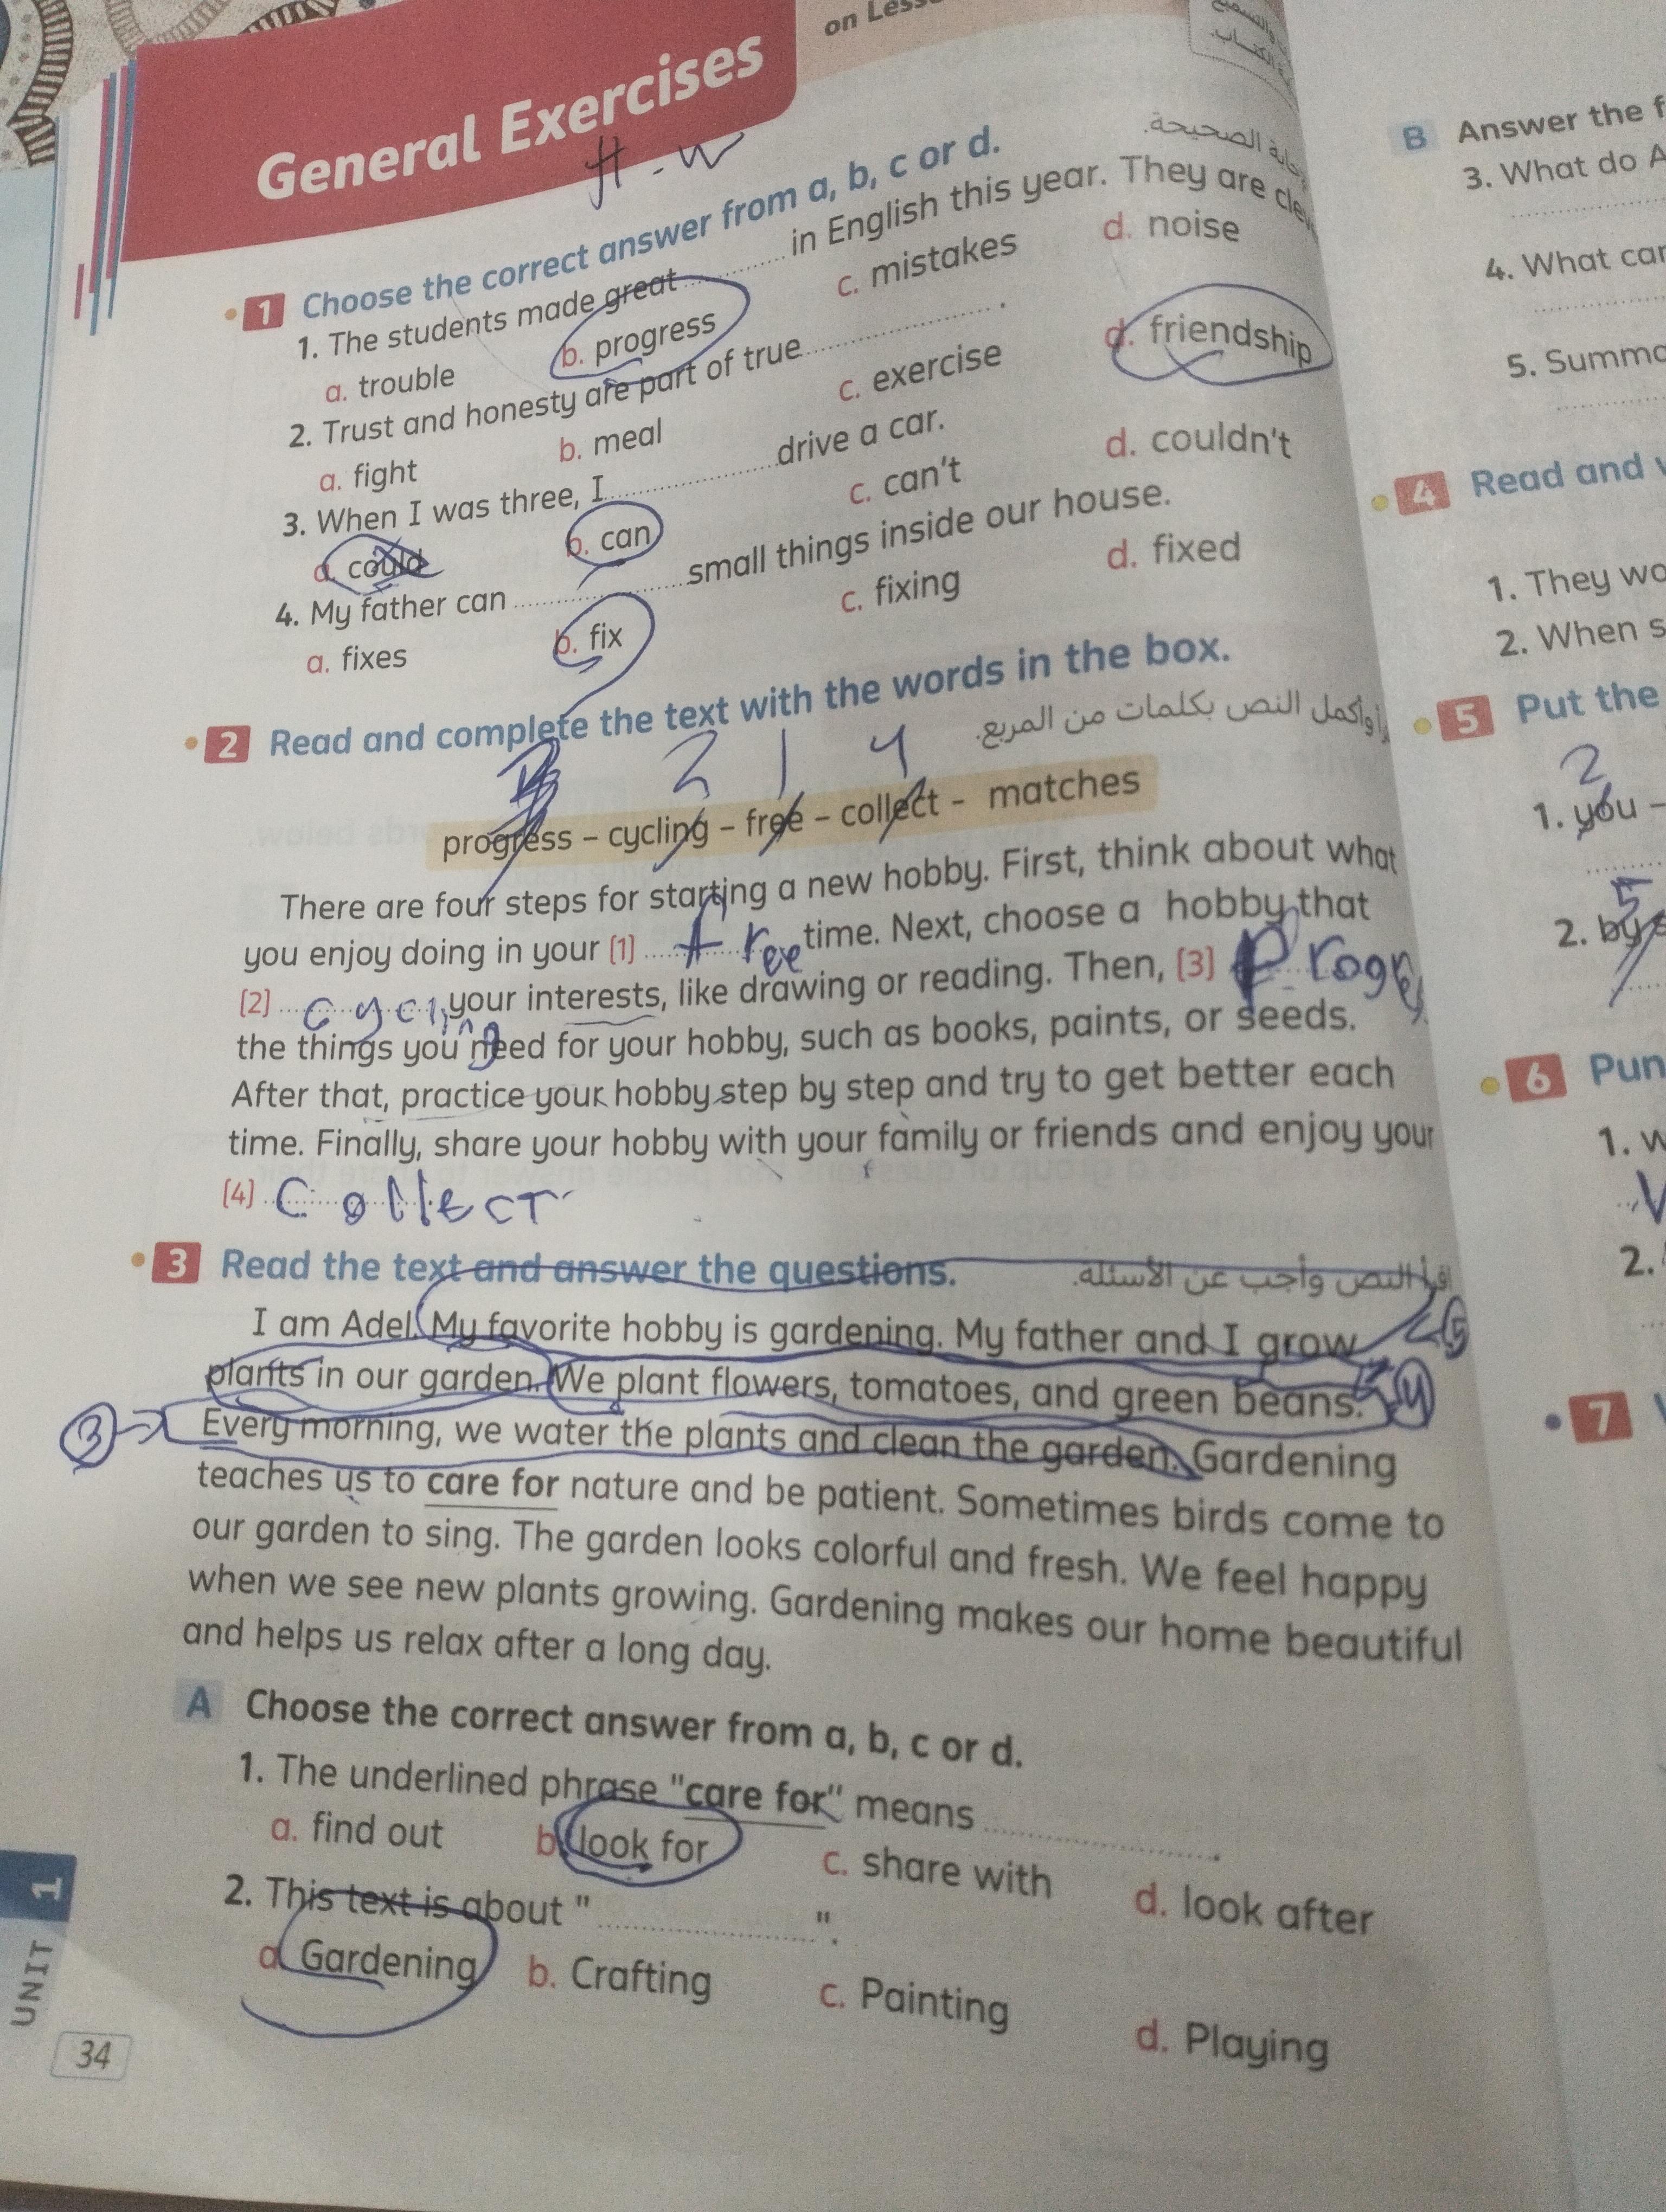 General Exercises
on
H - W
1 Choose the correct answer from a, b, c or d.
الصحيحة.
1. The students made great .......... in English this year. They are
a. trouble b. progress c. mistakes d. noise
2. Trust and honesty are part of true .......... .
a. fight b. meal c. exercise d. friendship
3. When I was three, I .......... drive a car.
a. could b. can c. can't d. couldn't
4. My father can .......... small things inside our house.
a. fixes b. fix c. fixing d. fixed
2 Read and complete the text with the words in the box.
وأكمل النص بكلمات من المربع.
2 1 4
progress – cycling – free – collect – matches
There are four steps for starting a new hobby. First, think about what
you enjoy doing in your (1) free time. Next, choose a hobby that
(2) cycling your interests, like drawing or reading. Then, (3)
the things you need for your hobby, such as books, paints, or seeds.
After that, practice your hobby step by step and try to get better each
time. Finally, share your hobby with your family or friends and enjoy your
(4) collect
3 Read the text and answer the questions.
اقرأ النص وأجب عن الأسئلة.
I am Adel. My favorite hobby is gardening. My father and I grow 5
plants in our garden. We plant flowers, tomatoes, and green beans. 4
3 Every morning, we water the plants and clean the garden. Gardening
teaches us to care for nature and be patient. Sometimes birds come to
our garden to sing. The garden looks colorful and fresh. We feel happy
when we see new plants growing. Gardening makes our home beautiful
and helps us relax after a long day.
A Choose the correct answer from a, b, c or d.
1. The underlined phrase "care for" means .......... .
a. find out b. look for c. share with d. look after
2. This text is about " .......... ".
a. Gardening b. Crafting c. Painting d. Playing
UNIT 1
34
B Answer the
3. What do
4. What
5.
4 Read and
1. They
2. When
5 Put the
2
1. you –
5
2. by
6
1.
2.
7